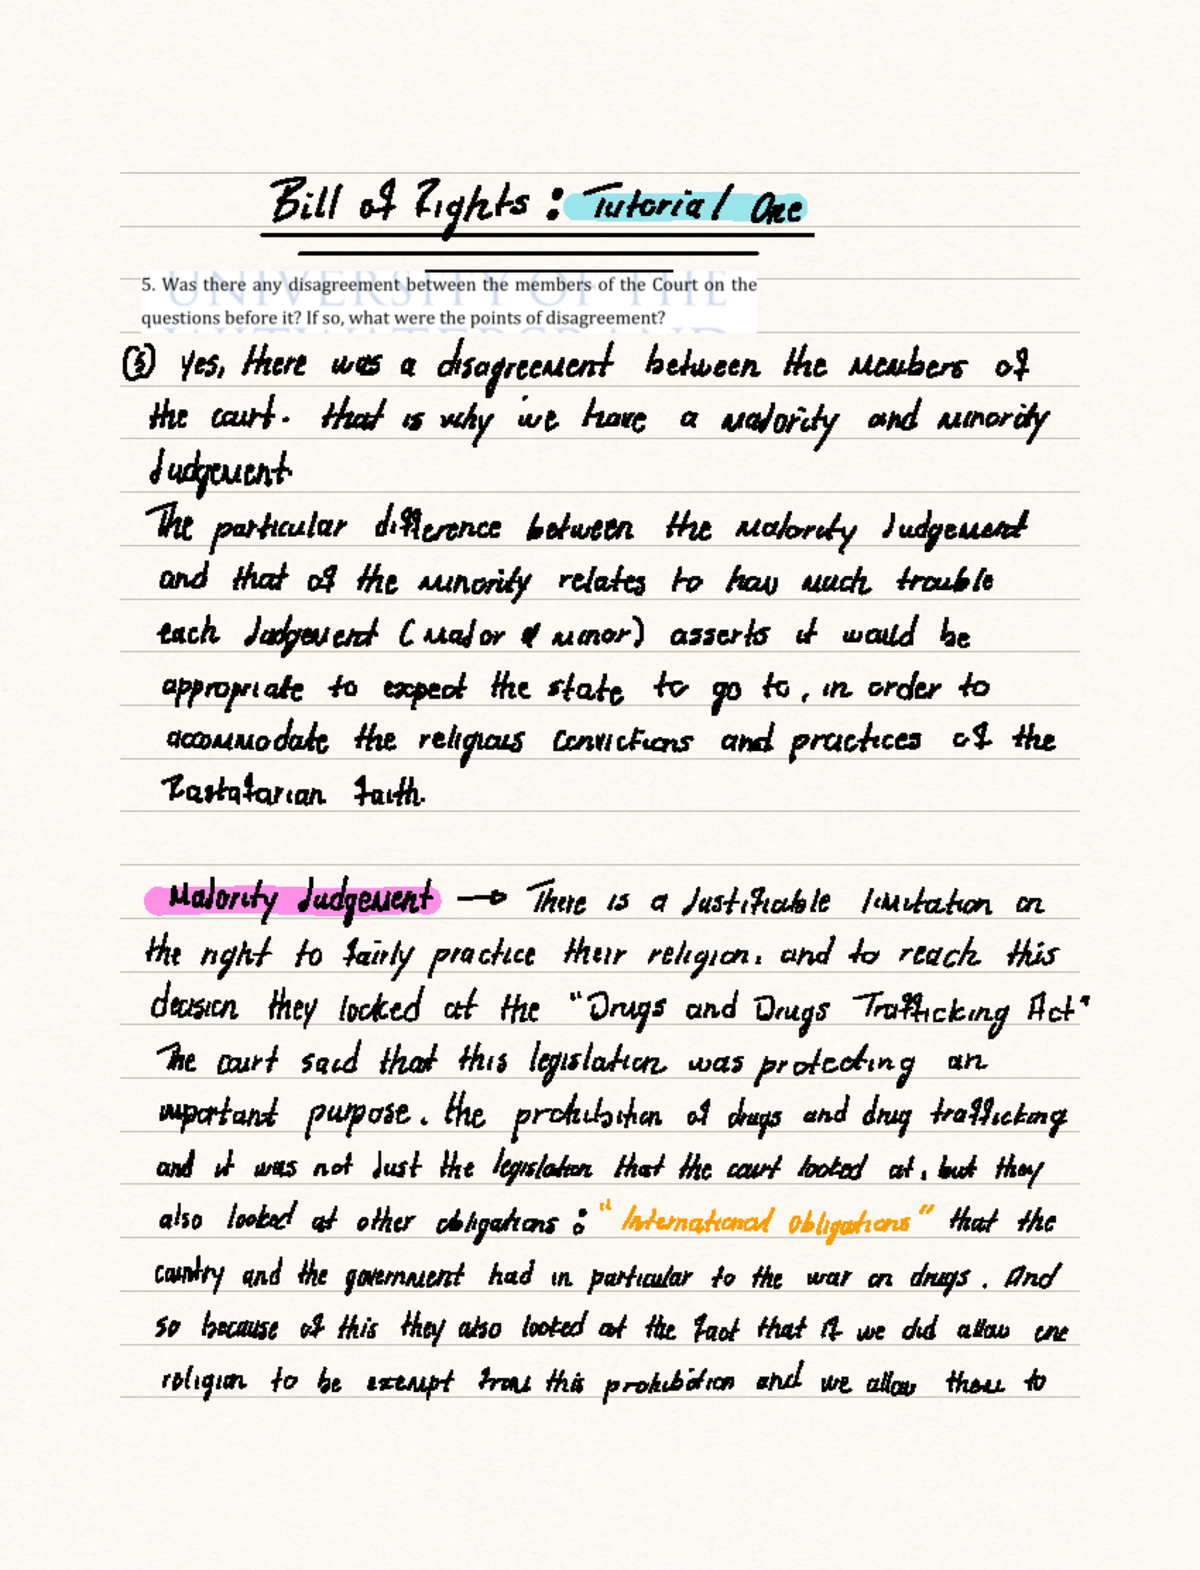 Bill of Rights : Tutorial One
UNIVERSITY OF THE
5. Was there any disagreement between the members of the Court on the
questions before it? If so, what were the points of disagreement?
WITWATERSRAND
(5) Yes, there was a disagreement between the members of
the court. that is why we have a majority and minority
Judgement.
The particular difference between the majority Judgement
and that of the minority relates to how much trouble
each Judgement (major & minor) asserts it would be
appropriate to expect the state to go to, in order to
accommodate the religious convictions and practices of the
Rastafarian faith.
Majority Judgement → There is a Justifiable limitation on
the right to fairly practice their religion. and to reach this
decision they looked at the "Drugs and Drugs Trafficking Act"
The court said that this legislation was protecting an
important purpose. the prohibition of drugs and drug trafficking
and it was not Just the legislation that the court looked at, but they
also looked at other obligations : "International Obligations" that the
country and the government had in particular to the war on drugs. And
so because of this they also looked at the fact that if we did allow one
religion to be exempt from this prohibition and we allow them to